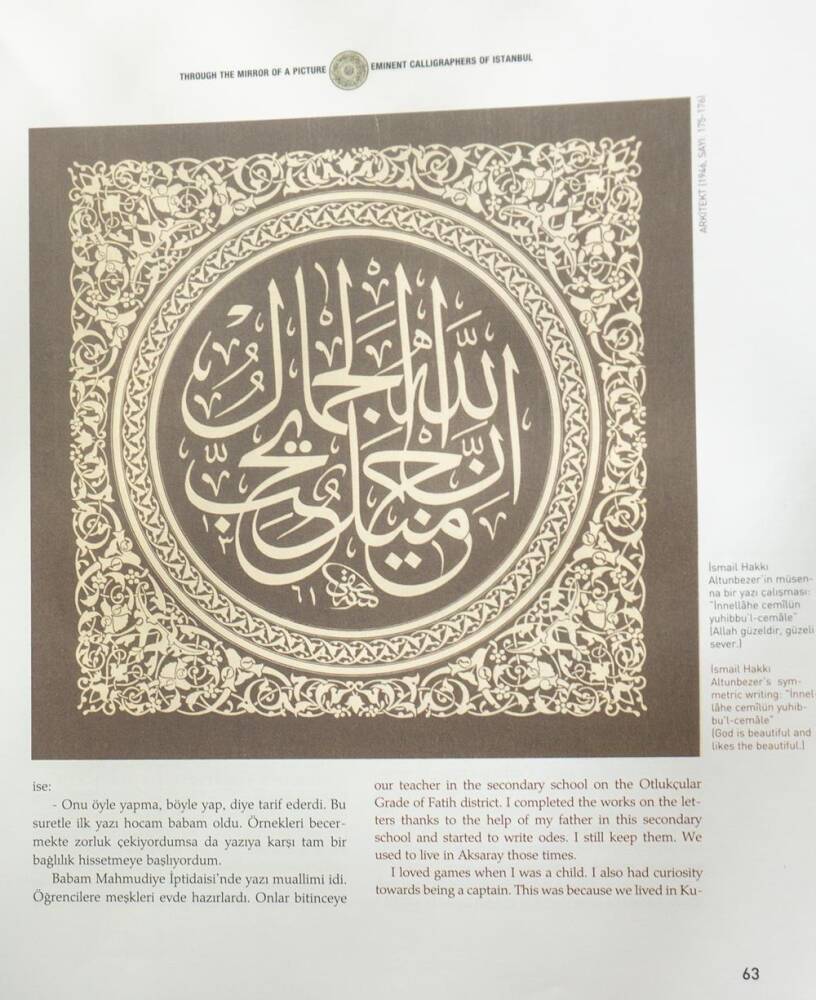 THROUGH THE MIRROR OF A PICTURE EMINENT CALLIGRAPHERS OF ISTANBUL
ARKİTEKT (1946, SAYI: 175-176)
ان الله جميل يحب الجمال
١٣
٦١
İsmail Hakkı
Altunbezer'in müsen-
na bir yazı çalışması:
"İnnellâhe cemîlün
yuhibbu'l-cemâle"
(Allah güzeldir, güzeli
sever.)
İsmail Hakkı
Altunbezer's sym-
metric writing: "İnnel-
lâhe cemîlün yuhib-
bu'l-cemâle"
(God is beautiful and
likes the beautiful.)
ise:
- Onu öyle yapma, böyle yap, diye tarif ederdi. Bu
suretle ilk yazı hocam babam oldu. Örnekleri becer-
mekte zorluk çekiyordumsa da yazıya karşı tam bir
bağlılık hissetmeye başlıyordum.
Babam Mahmudiye İptidaisi'nde yazı muallimi idi.
Öğrencilere meşkleri evde hazırlardı. Onlar bitinceye
our teacher in the secondary school on the Otlukçular
Grade of Fatih district. I completed the works on the let-
ters thanks to the help of my father in this secondary
school and started to write odes. I still keep them. We
used to live in Aksaray those times.
I loved games when I was a child. I also had curiosity
towards being a captain. This was because we lived in Ku-
63